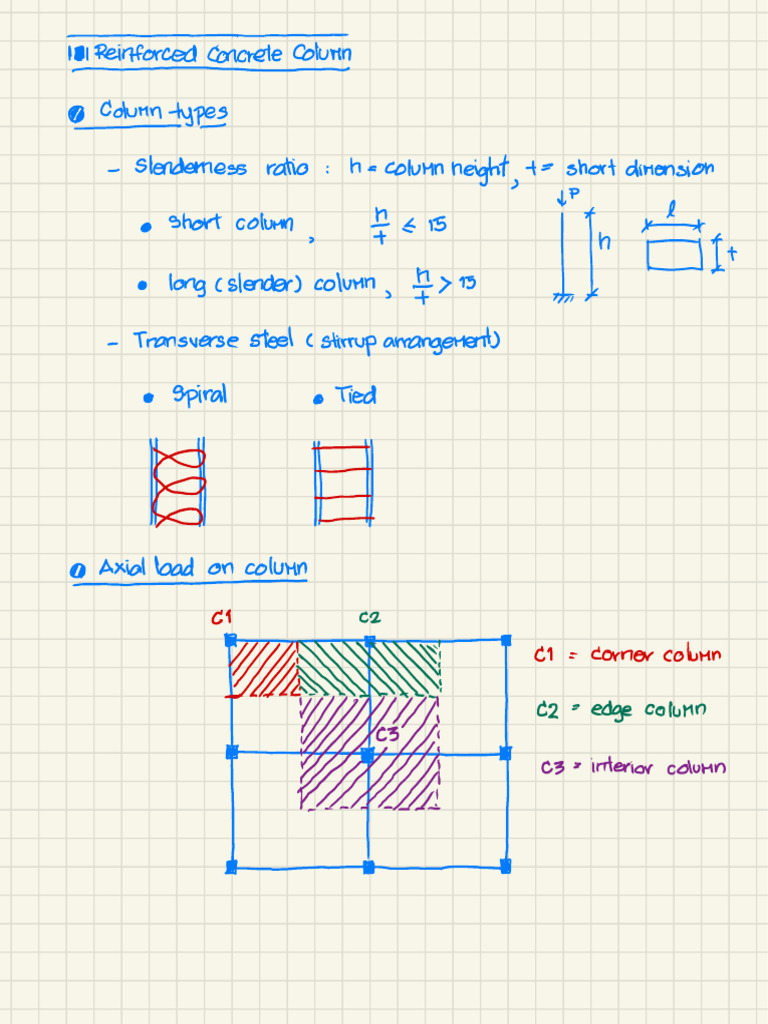 Reinforced Concrete Column
Column types
- Slenderness ratio : h = column height, t = short dimension
• short column, h/t ≤ 15
• long (slender) column, h/t > 15
P
h
l
t
- Transverse steel (stirrup arrangement)
• Spiral • Tied
Axial load on column
C1 C2
C3
C1 = corner column
C2 = edge column
C3 = interior column